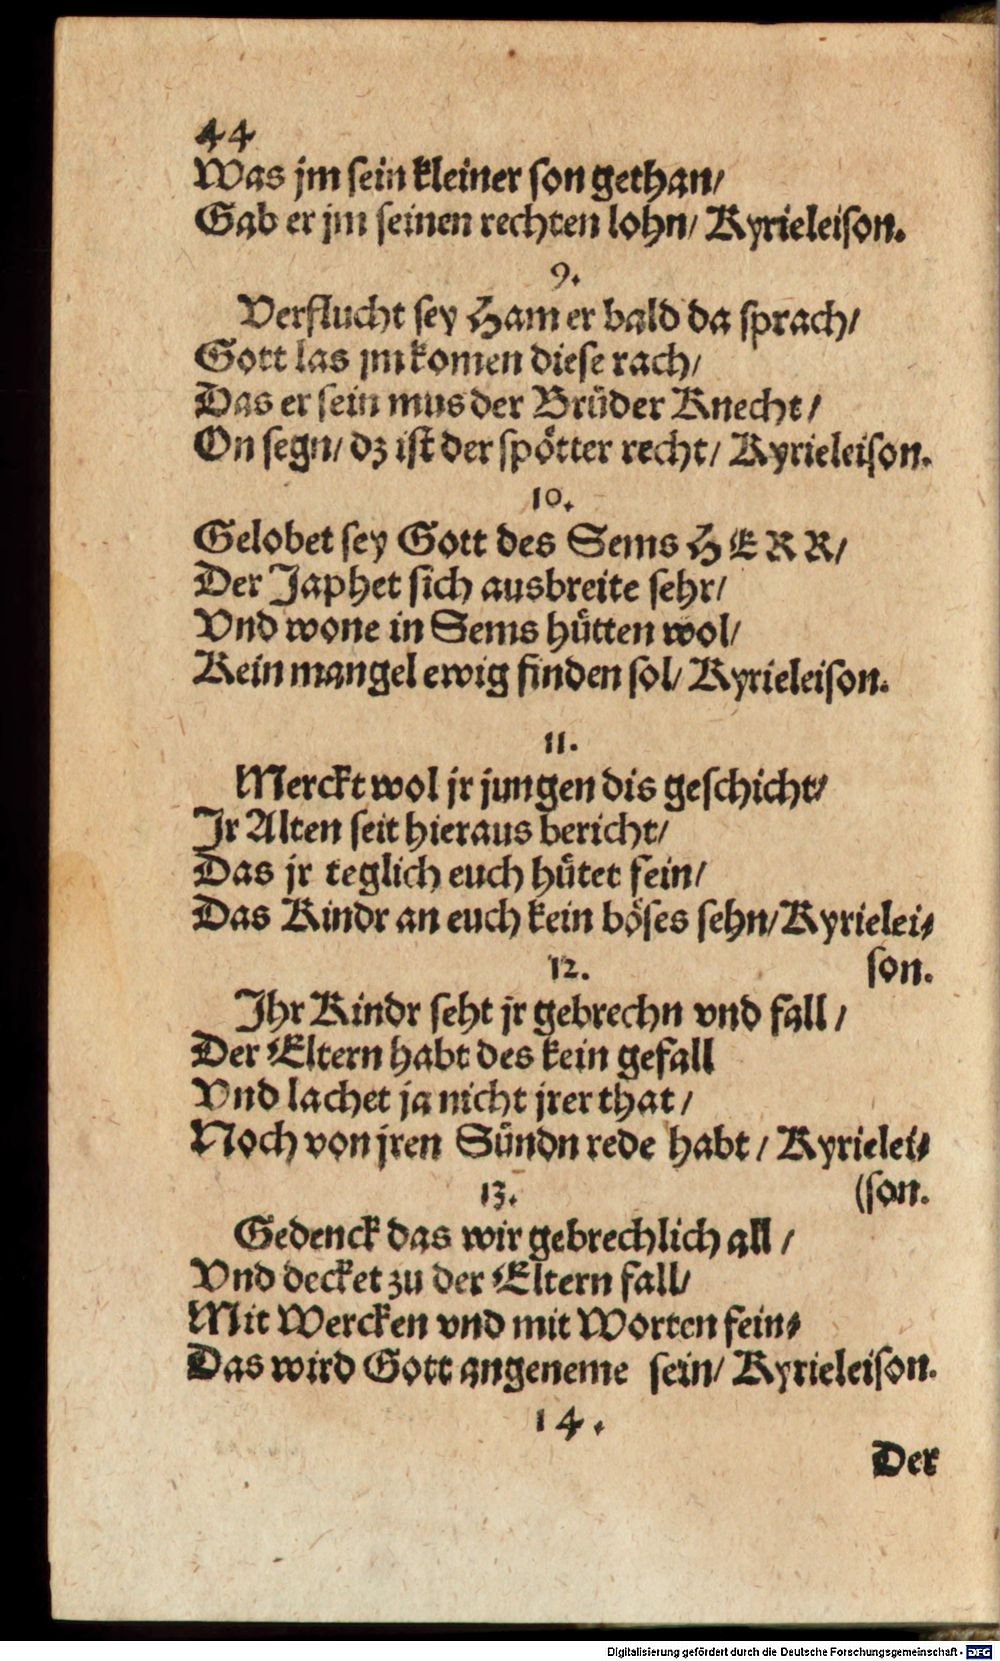 44
Was jm sein kleiner son gethan/
Gab er jm seinen rechten lohn/ Kyrieleison.
9.
Verflucht sey Ham er bald da sprach/
Gott las jm komen diese rach/
Das er sein mus der Brüder Knecht/
On segn/ dz ist der spötter recht/ Kyrieleison.
10.
Gelobet sey Gott des Sems HERR/
Der Japhet sich ausbreite sehr/
Vnd wone in Sems hütten wol/
Kein mangel ewig finden sol/ Kyrieleison.
11.
Merckt wol jr jungen dis geschicht/
Jr Alten seit hieraus bericht/
Das jr teglich euch hütet fein/
Das Kindr an euch kein böses sehn/ Kyrielei⸗
son.
12.
Jhr Kindr seht jr gebrechn vnd fall/
Der Eltern habt des kein gefall
Vnd lachet ja nicht jrer that/
Noch von jren Sündn rede habt/ Kyrielei⸗
(son.
13.
Gedenck das wir gebrechlich all/
Vnd decket zu der Eltern fall/
Mit Wercken vnd mit Worten fein⸗
Das wird Gott angeneme sein/ Kyrieleison.
14.
Der
Digitalisierung gefördert durch die Deutsche Forschungsgemeinschaft - DFG